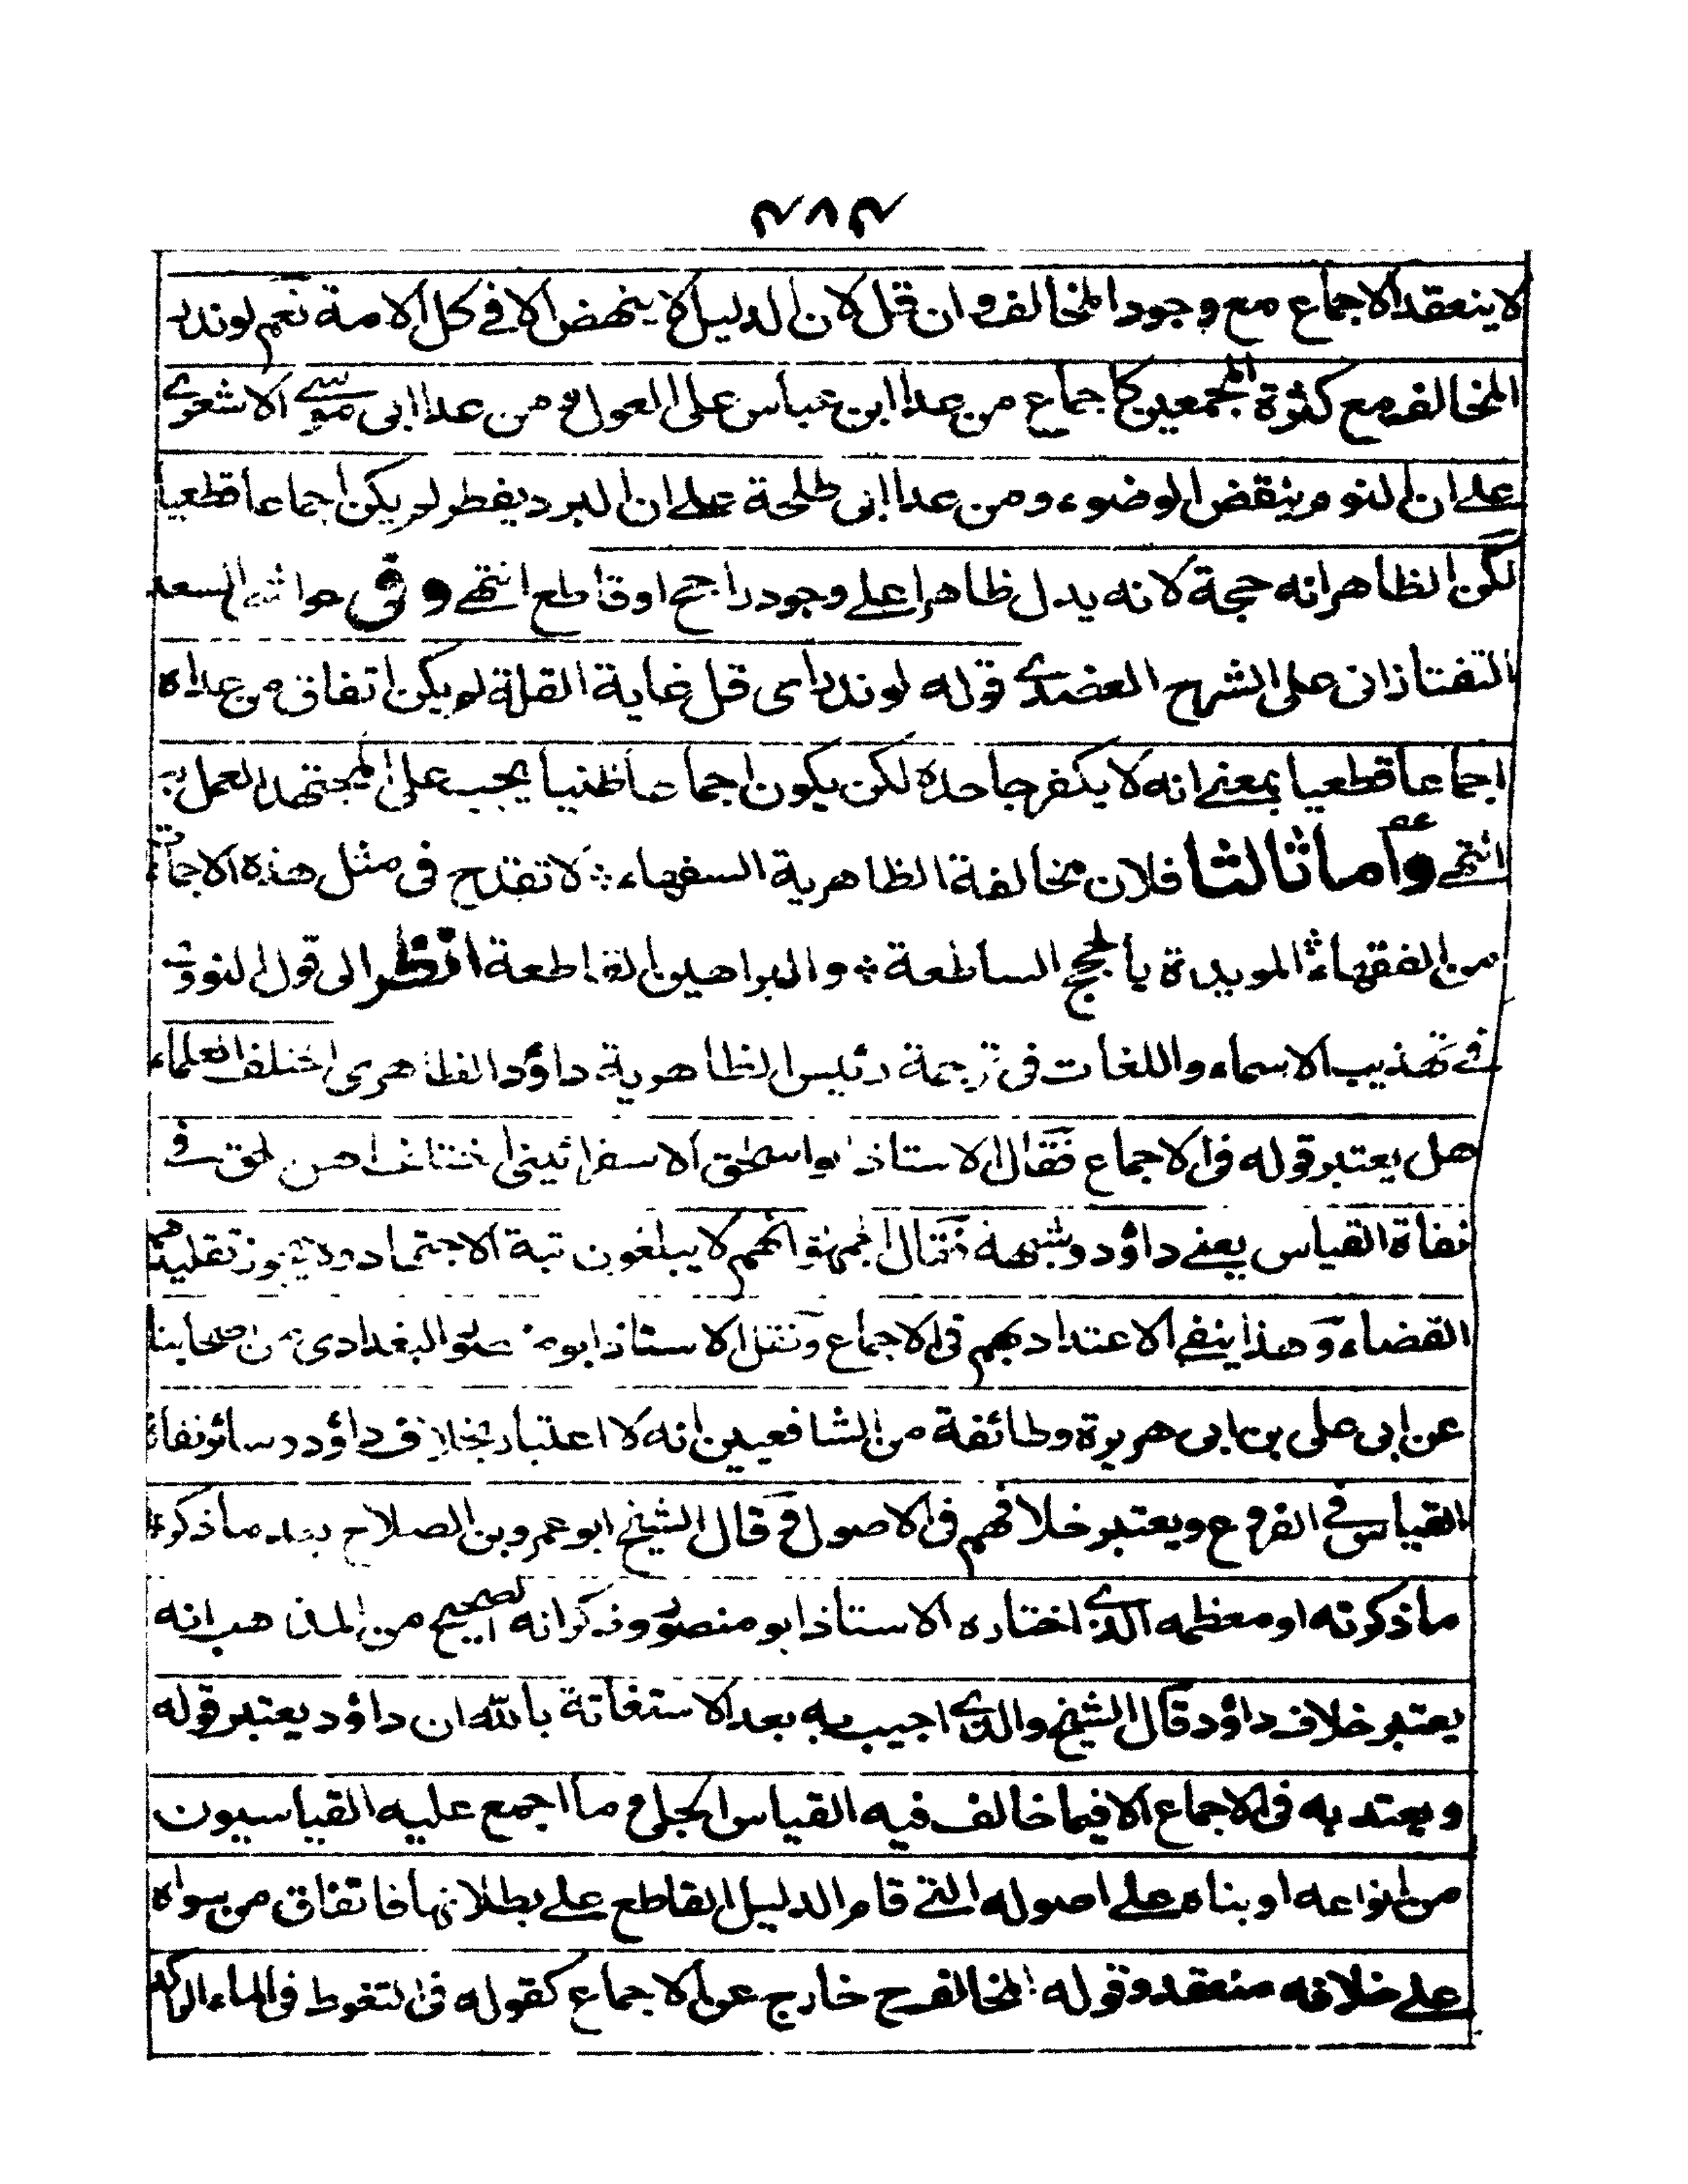 ٤٨٤
لا ينعقد الاجماع مع وجود المخالف وان قل لان الدليل لا ينهض الا في كل الامة نعم لو ندر
المخالف مع كثرة المجمعين كاجماع من عدا ابن عباس على العول ومن عدا ابى موسى الاشعرى
على ان النوم ينقض الوضوء ومن عدا ابى طلحة على ان البرد يفطر لم يكن اجماعا قطعيا
لكن الظاهر انه حجة لانه يدل ظاهرا على وجود راجح او قاطع انتهى وفى حواشى السعد
التفتازانى على الشرح العضدى قوله لو ندر اى قل غاية القلة لم يكن اتفاق من عداه
اجماعا قطعيا بمعنى انه لا يكفر جاحده لكن يكون اجماعا ظنيا يجب على المجتهد العمل به
انتهى وأما ثالثا فلان مخالفة الظاهرية السفهاء ؞ لا تقدح فى مثل هذه الاجماعات
من الفقهاء المويدة بالحجج الساطعة ؞ والبراهين القاطعة انظر الى قول النووى
فى تهذيب الاسماء واللغات فى ترجمة رئيس الظاهرية داؤد الظاهرى اختلف العلماء
هل يعتبر قوله فى الاجماع فقال الاستاذ ابو اسحٰق الاسفرائينى اختلف اهل الحق فى
نفاة القياس يعنى داؤد وشبهه فقال الجمهور انهم لا يبلغون رتبة الاجتهاد ولا يجوز تقليدهم
القضاء وهذا ينفى الاعتداد بهم فى الاجماع ونقل الاستاذ ابو منصور البغدادى من اصحابنا
عن ابى على بن ابى هريرة وطائفة من الشافعيين انه لا اعتبار بخلاف داؤد وسائر نفاة
القياس فى الفروع ويعتبر خلافهم فى الاصول وقال الشيخ ابو عمرو بن الصلاح بعد ما ذكره
ما ذكرته او معظمه الذى اختاره الاستاذ ابو منصور وذكر انه الصحيح من المذهب انه
يعتبر خلاف داؤد قال الشيخ والذى اجيب به بعد الاستغاثة بالله ان داؤد يعتبر قوله
ويعتد به فى الاجماع الا فيما خالف فيه القياس الجلى وما اجمع عليه القياسيون
من انواعه او بناه على اصوله التى قام الدليل القاطع على بطلانها فاتفاق من سواه
على خلافه منعقد وقوله المخالف ح خارج عن الاجماع كقوله فى التغوط فى الماء الراكد